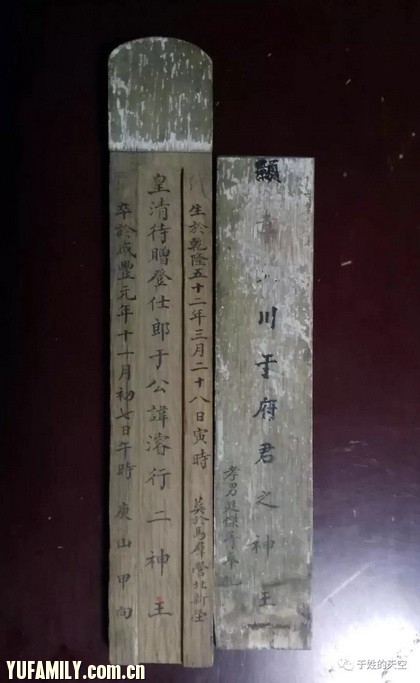 顯
川于府君之神王
孝男廷傑等奉祀
生於乾隆五十二年三月二十八日寅時
葬於馬群營北新塋
皇清待贈登仕郎于公諱濬行二神王
卒於咸豐元年十一月初七日午時
庚山甲向
于姓的天空
YUFAMILY.com.cn